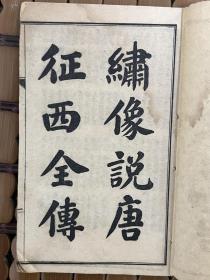 繡像說唐
征西全傳